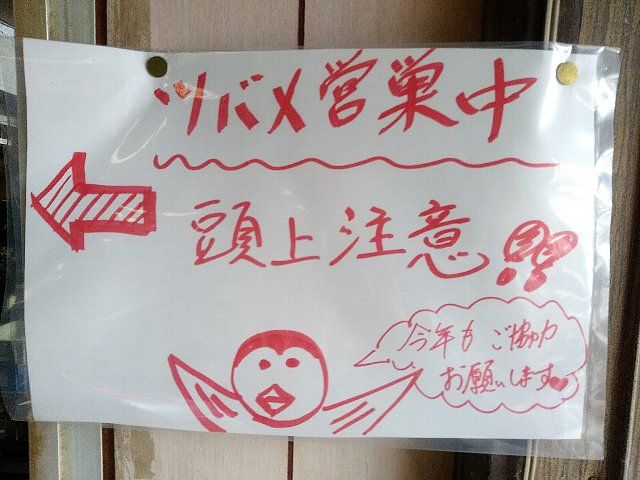 ツバメ営巣中
頭上注意!!
今年もご協力
お願いします♥